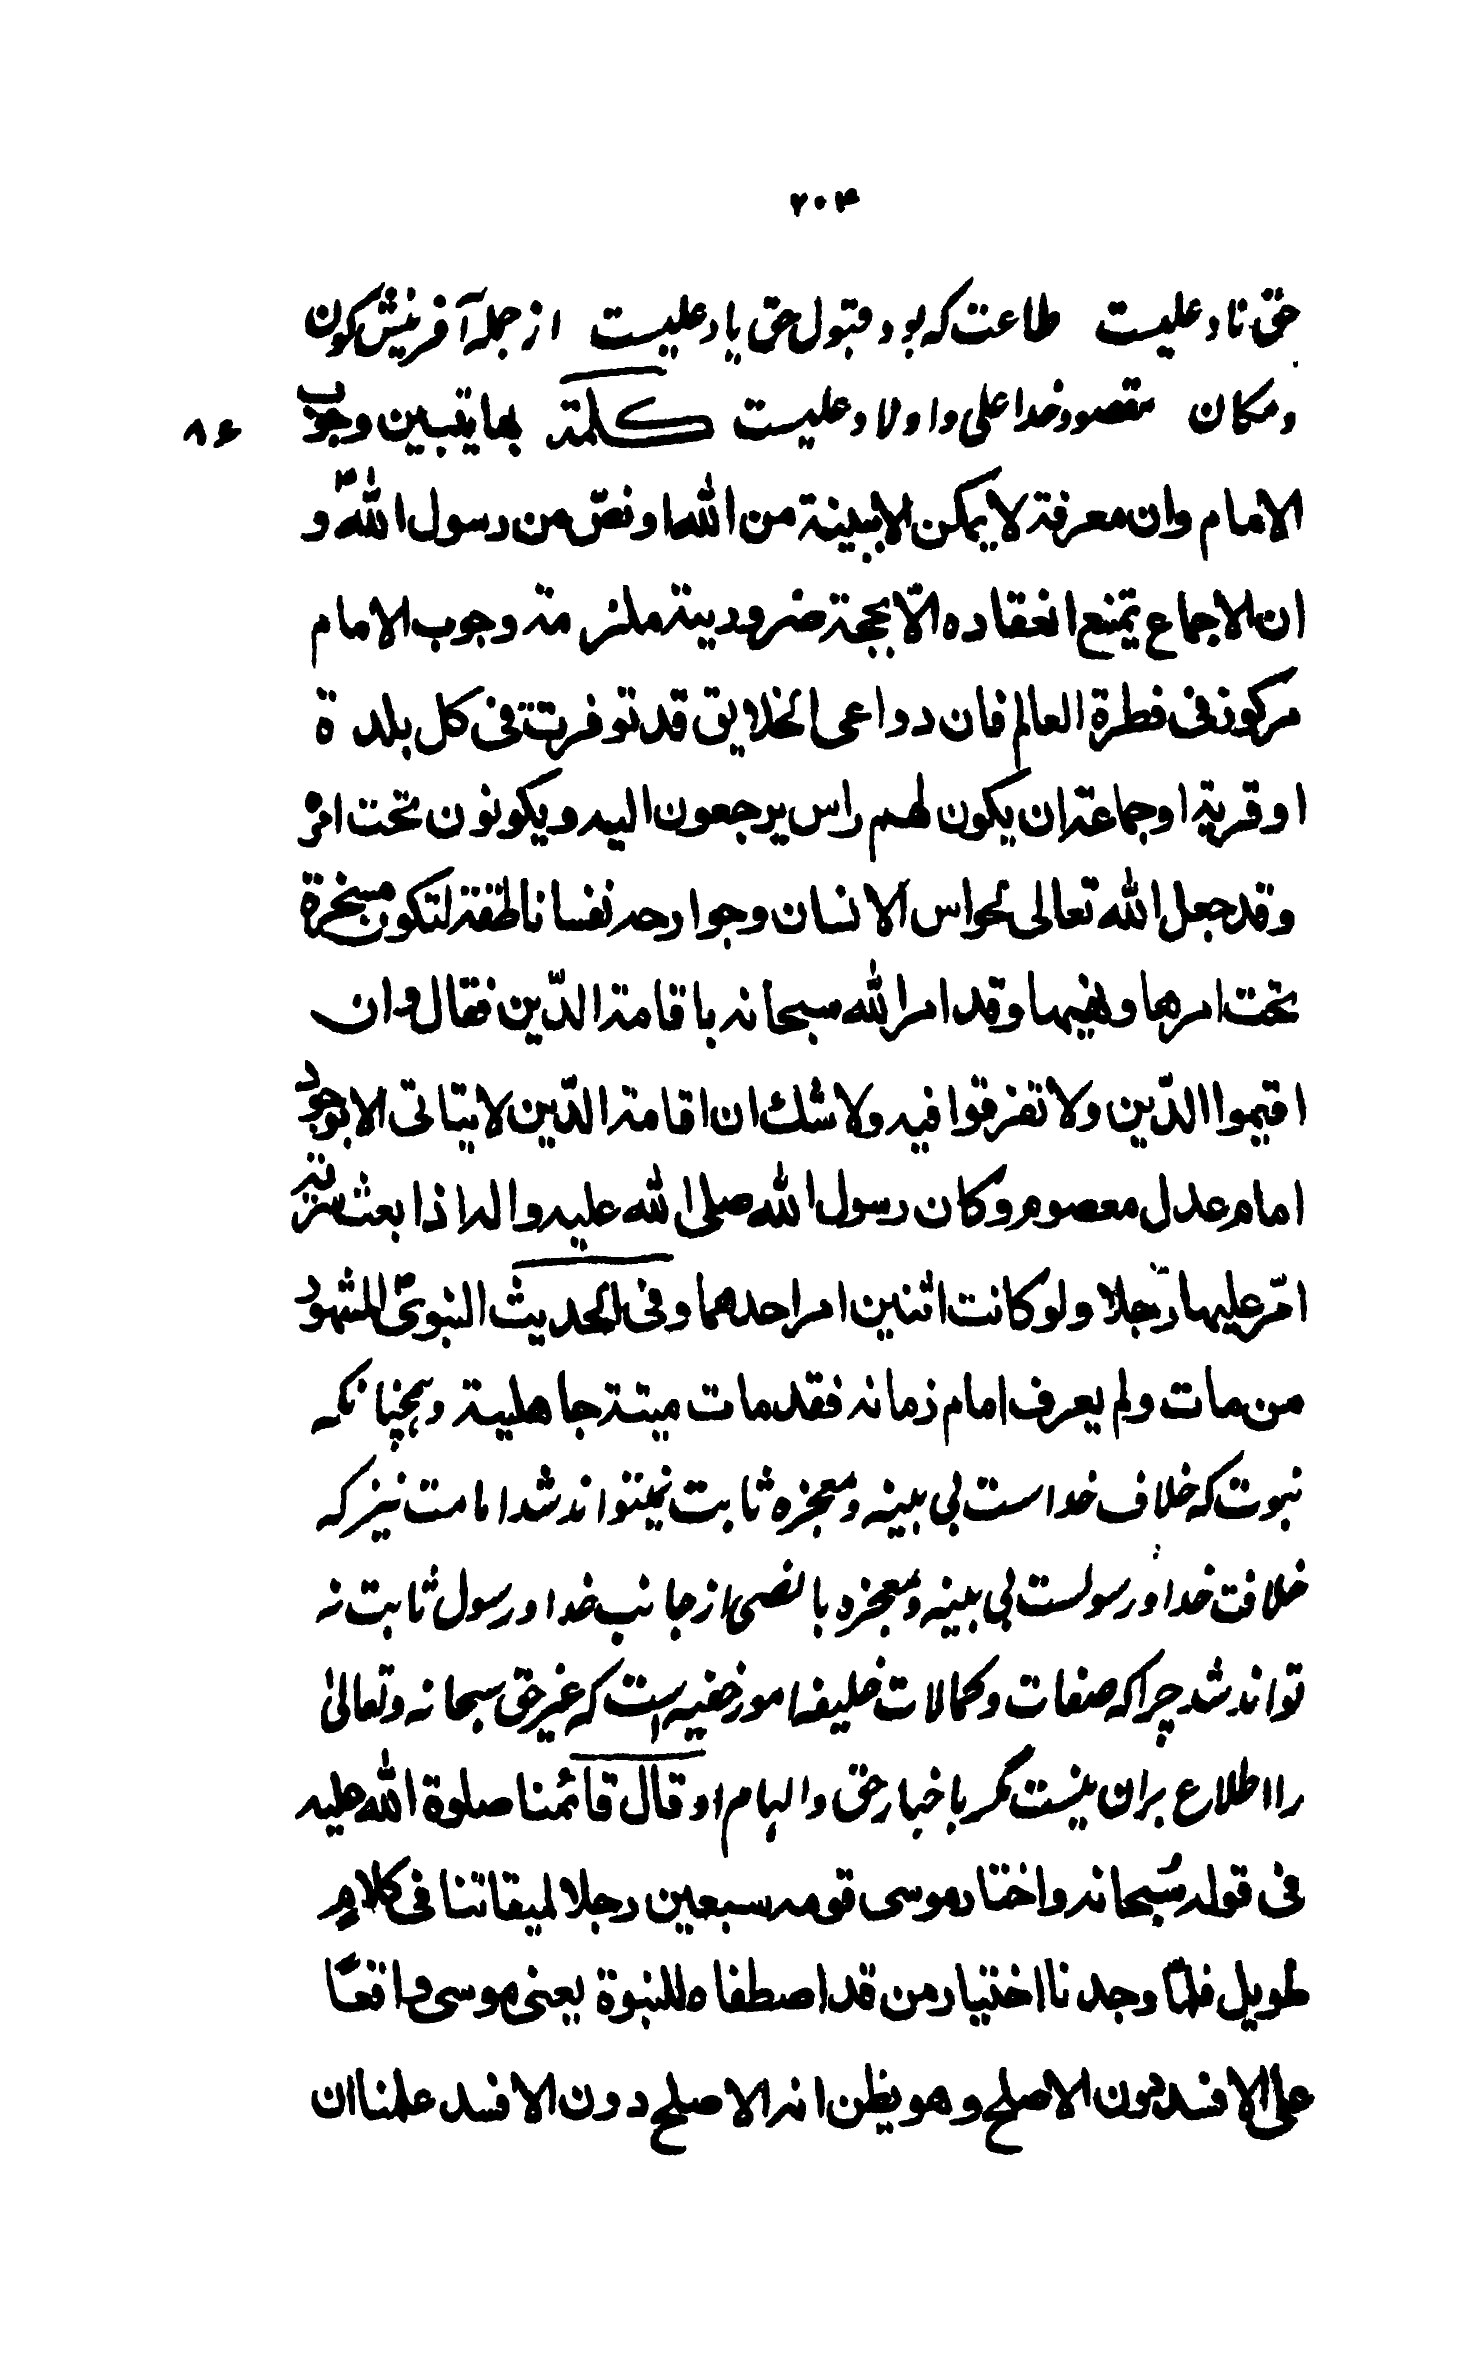 ۲۰۴
حق ناد علیست طاعت که بود قبول حق یاد علیست از جمله آفرینش کون
و مکان مقصود خدا علی و اولاد علیست كلمة بها يتبين وجوب
۸۶
الامام وان معرفة لا يمكن الا ببينة من الله او نص من رسول الله ص و
ان الاجماع يمتنع انعقاده الّا بحجة ضرورية ملزمة وجوب الامام
مركوز فى فطرة العالم فان دواعى الخلايق قد توفرت فى كل بلدة
او قرية او جماعة ان يكون لهم راس يرجعون اليه ويكونون تحت امره
وقد جعل الله تعالى لحواس الانسان وجوارحه نفسا ناطقة لتكون مسخرة
تحت امرها ونهيها وقد امر الله سبحانه باقامة الدّين فقال وان
اقيموا الدّين ولا تفرقوا فيه ولا شك ان اقامة الدّين لا يتاتى الا بوجود
امام عدل معصوم وكان رسول الله صلى الله عليه واله اذا بعث سرية
امّر عليها رجلا ولو كانت اثنين امر احدهما وفى الحديث النبوىّ المشهور
من مات ولم يعرف امام زمانه فقد مات ميتة جاهلية و همچنانکه
نبوت که خلاف خداست بی بینه و معجزه ثابت نمیتواند شد امامت نیز که
خلافت خدا و رسولست بی بینه و معجزه با نصی از جانب خدا و رسول ثابت نه
تواند شد چرا که صفات و کمالات خلیفه امور خفیه است که غیر حق سبحانه و تعالی
را اطلاع بران نیست مگر باخبار حق و الهام او قال قائمنا صلوة الله عليه
فى قوله سُبحانه واختار موسى قومه سبعين رجلا لميقاتنا فى كلام
طويل فلمّا وجدنا اختيار من قد اصطفاه للنبوة يعنى موسى واقعًا
على الافسد دون الاصلح وهو يظن انه الاصلح دون الافسد علمنا ان